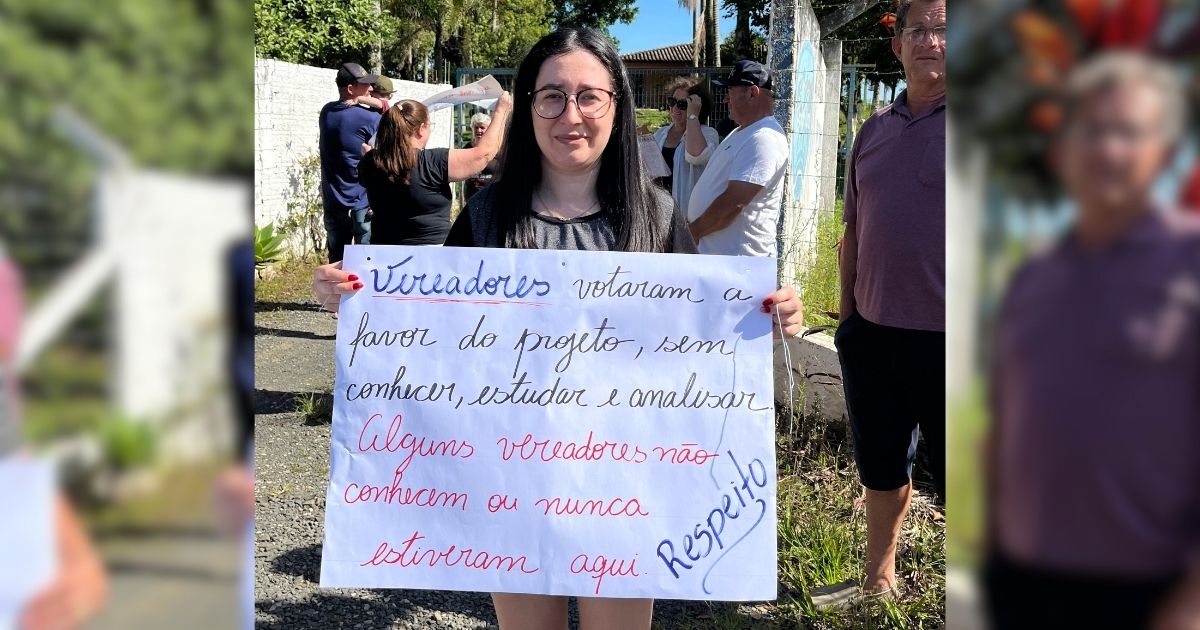 Vereadores votaram a
favor do projeto, sem
conhecer, estudar e analisar.
Alguns vereadores não
conhecem ou nunca
estiveram aqui.
Respeito